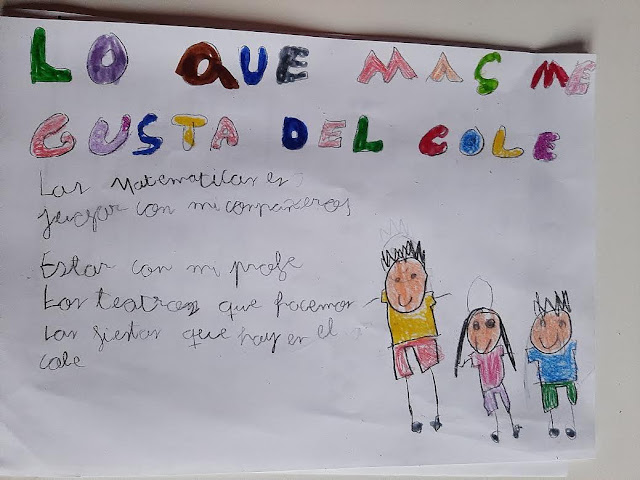 LO QUE MAS ME
GUSTA DEL COLE
Las Matematicas es
jugar con mi compañeros
Estar con mi profe
Los teatros que hacemos
Las fiestas que hay en el
cole